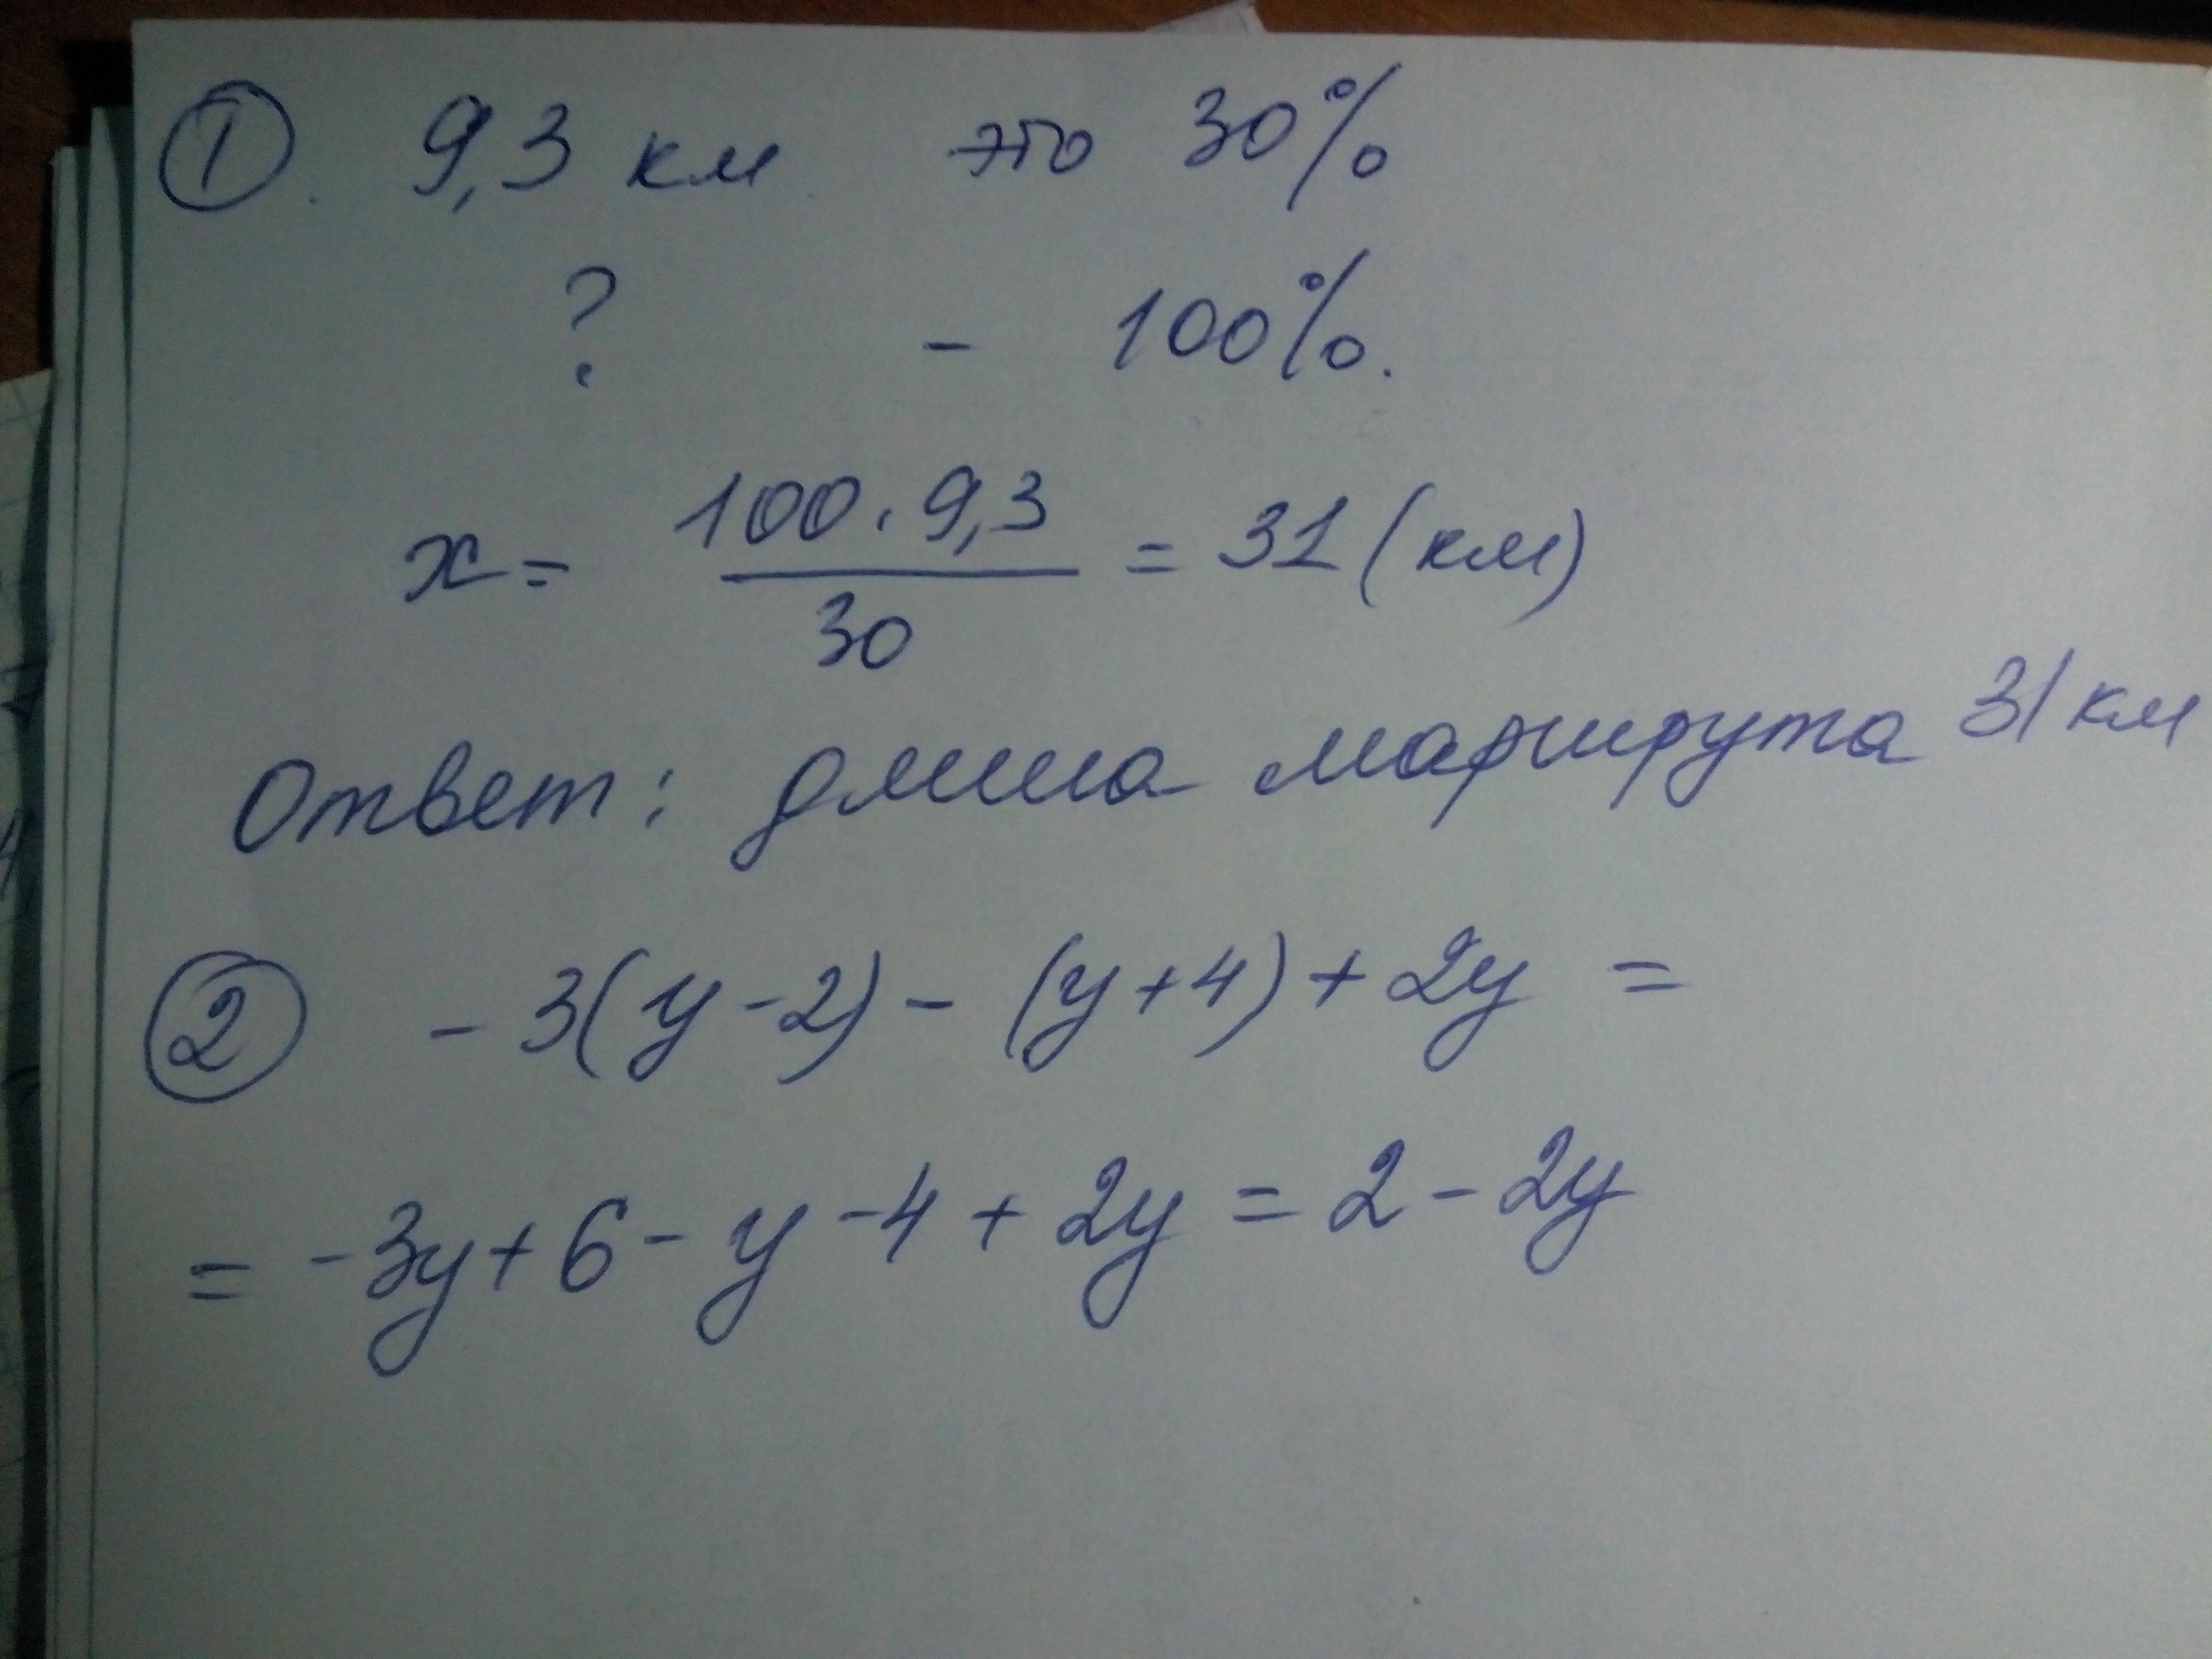 ① . 9,3 км это 30%
? - 100%.
x = 100 · 9,3 / 30 = 31 (км)
Ответ: длина маршрута 31 км
② - 3(y - 2) - (y + 4) + 2y =
= - 3y + 6 - y - 4 + 2y = 2 - 2y